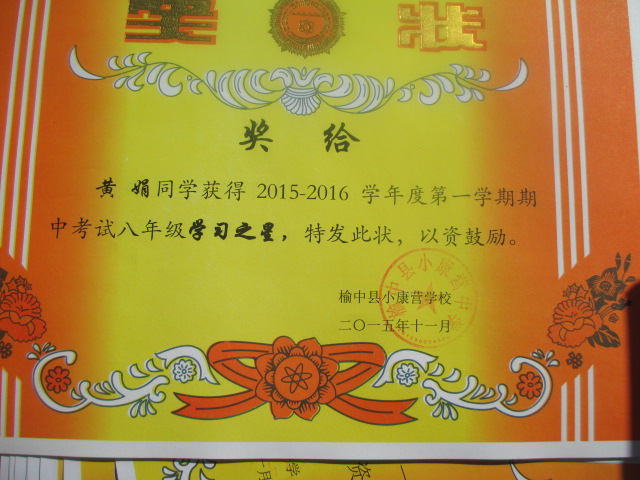 奖状
奖 给
黄 娟同学获得 2015-2016 学年度第一学期期
中考试八年级学习之星，特发此状，以资鼓励。
榆中县小康营学校
二〇一五年十一月
榆中县小康营中学
学
一月
资